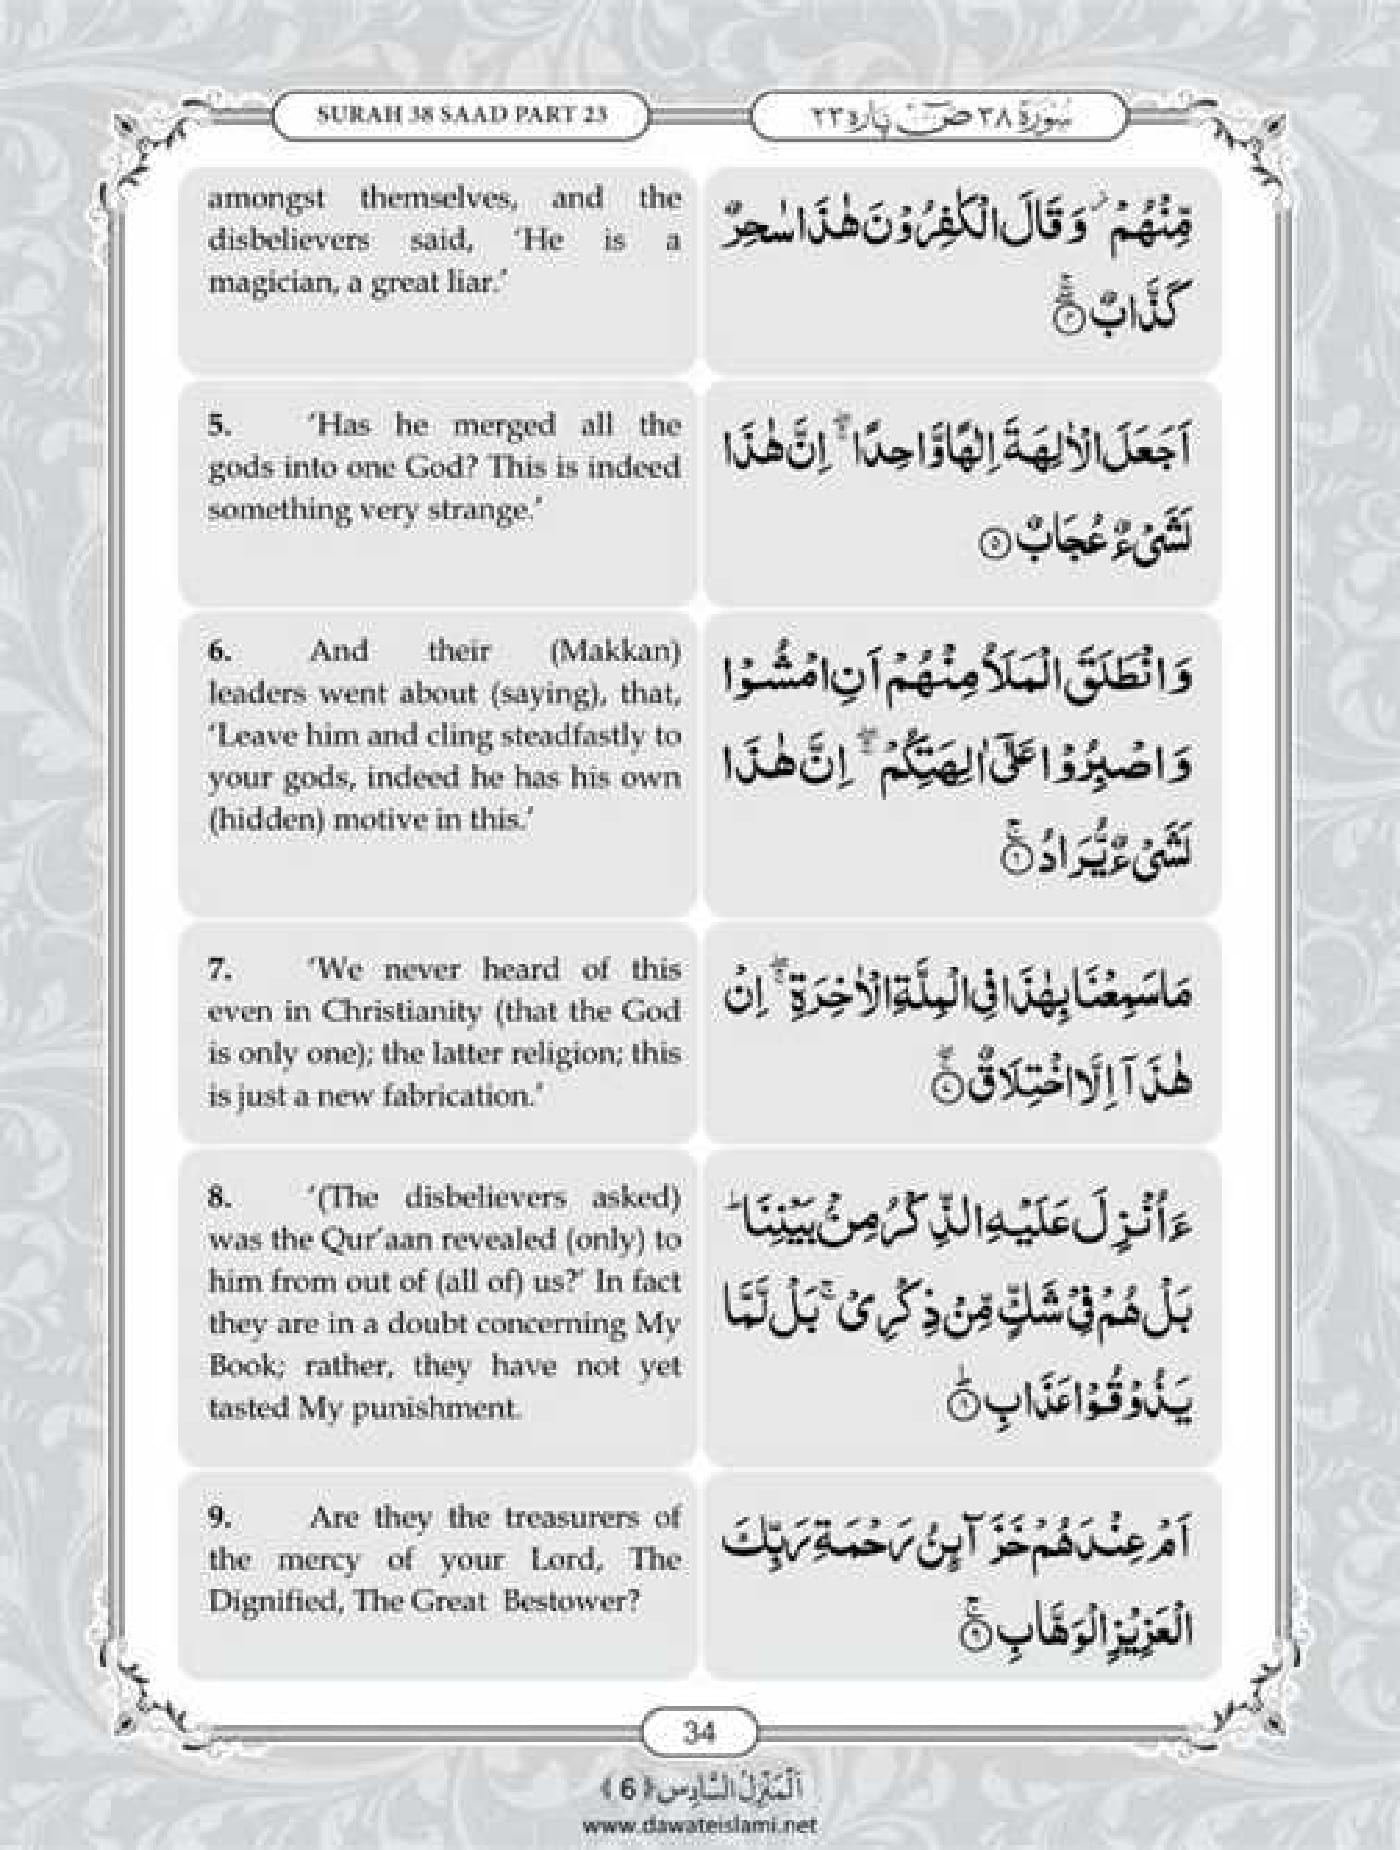 SURAH 38 SAAD PART 23
سُوْرَةُ ٣٨ صٓ پاره ٢٣
amongst themselves, and the
disbelievers said, ‘He is a
magician, a great liar.’
مِّنْهُمْ ۫ وَ قَالَ الْكٰفِرُوْنَ هٰذَا سٰحِرٌ
كَذَّابٌ ۖۚ ﴿۴﴾
5. ‘Has he merged all the
gods into one God? This is indeed
something very strange.’
اَجَعَلَ الْاٰلِهَةَ اِلٰهًا وَّاحِدًا ۖۚ اِنَّ هٰذَا
لَشَیْءٌ عُجَابٌ ﴿۵﴾
6. And their (Makkan)
leaders went about (saying), that,
‘Leave him and cling steadfastly to
your gods, indeed he has his own
(hidden) motive in this.’
وَ انْطَلَقَ الْمَلَاُ مِنْهُمْ اَنِ امْشُوْا
وَ اصْبِرُوْا عَلٰۤی اٰلِهَتِكُمْ ۖۚ اِنَّ هٰذَا
لَشَیْءٌ یُّرَادُ ۚ ﴿۶﴾
7. ‘We never heard of this
even in Christianity (that the God
is only one); the latter religion; this
is just a new fabrication.’
مَا سَمِعْنَا بِهٰذَا فِی الْمِلَّةِ الْاٰخِرَةِ ۖۚ اِنْ
هٰذَاۤ اِلَّا اخْتِلَاقٌ ۖۚ ﴿۷﴾
8. ‘(The disbelievers asked)
was the Qur’aan revealed (only) to
him from out of (all of) us?’ In fact
they are in a doubt concerning My
Book; rather, they have not yet
tasted My punishment.
ءَاُنْزِلَ عَلَیْهِ الذِّكْرُ مِنْۢ بَیْنِنَا ؕ
بَلْ هُمْ فِیْ شَكٍّ مِّنْ ذِكْرِیْ ۚ بَلْ لَّمَّا
یَذُوْقُوْا عَذَابِ ؕ ﴿۸﴾
9. Are they the treasurers of
the mercy of your Lord, The
Dignified, The Great Bestower?
اَمْ عِنْدَهُمْ خَزَآىِٕنُ رَحْمَةِ رَبِّكَ
الْعَزِیْزِ الْوَهَّابِ ۚ ﴿۹﴾
34
اَلْمَنْزِلُ السَّادِس ﴿6﴾
www.dawateislami.net